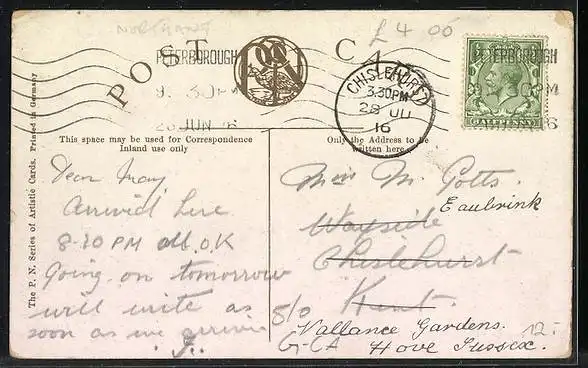 NORTHANT
£4 00
POST CA
PETERBOROUGH
9 30PM
28 JUN 16
PN
CHISLEHURST
3.30PM
28 JU
16
PETERBOROUGH
HALFPENNY
The P. N. Series of Artistic Cards. Printed in Germany
This space may be used for Correspondence
Inland use only
Only the Address to be
written here
Dear May,
Arrived here
8-10 PM all O.K
Going on tomorrow
will write as
soon as we arrive
J..
Miss M. Potts.
Eaubrink
Wayside
Chislehurst
Kent.
Vallance Gardens.
Hove Sussex.
12.-